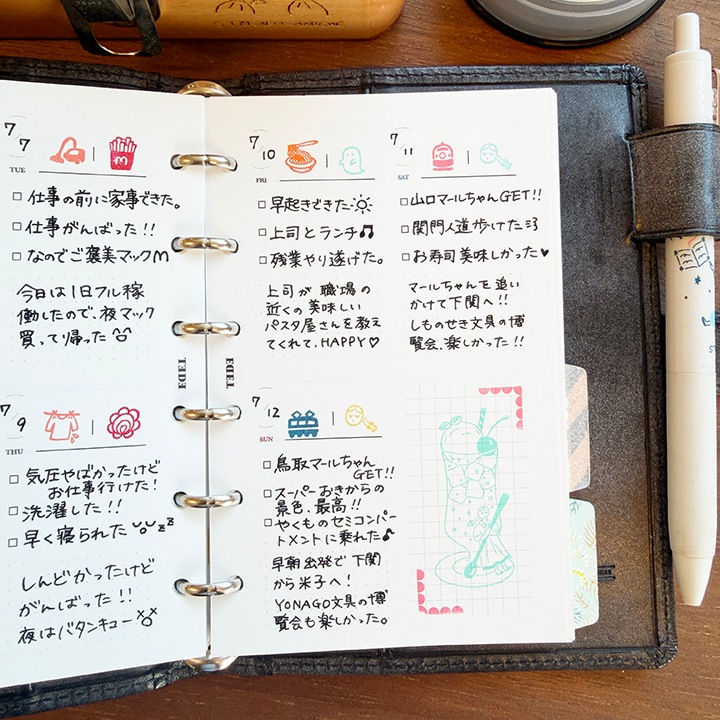 7/7
TUE
M
□ 仕事の前に家事できた。
□ 仕事がんばった!!
□ なのでご褒美マックM
今日は1日フル稼
働したので、夜マック
買って帰った
7/9
THU
□ 気圧やばかったけど
お仕事行けた!
□ 洗濯した!!
□ 早く寝られた zz
しんどかったけど
がんばった!!
夜はバタンキュー
7/10
FRI
□ 早起きできた
□ 上司とランチ♫
□ 残業やり遂げた。
上司が職場の
近くの美味しい
パスタ屋さんを教え
てくれて、HAPPY♡
7/11
SAT
□ 山口マールちゃんGET!!
□ 関門人道歩けた
□ お寿司美味しかった♥
マールちゃんを追い
かけて下関へ!!
しものせき文具の博
覧会、楽しかった!!
7/12
SUN
□ 鳥取マールちゃん
GET!!
□ スーパーおきからの
景色、最高!!
□ やくものセミコンパー
トメントに乗れた♪
早朝出発で下関
から米子へ!
YONAGO文具の博
覧会も楽しかった。
TEDE
TEDE